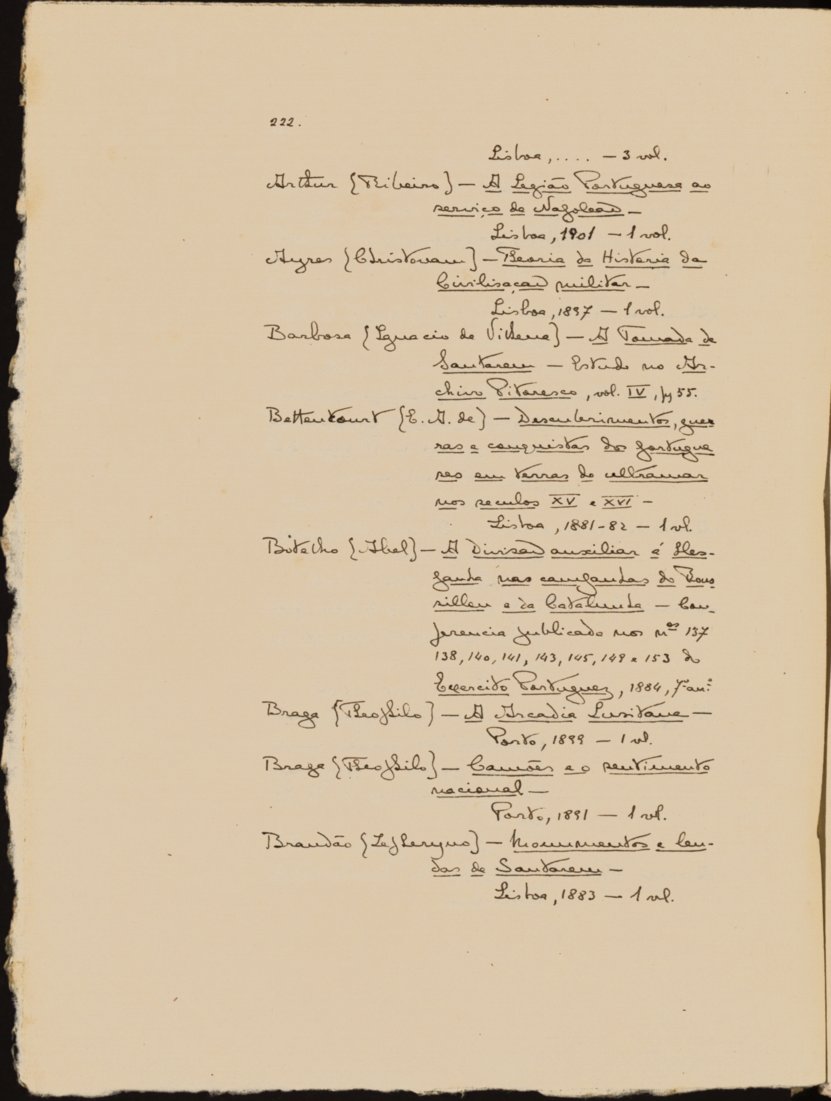 222.
Lisboa, .... — 3 vol.
Arthur {Ribeiro} — A Legião Portuguesa ao
serviço de Napoleão —
Lisboa, 1901 — 1 vol.
Ayres {Christovam} — Theoria da Historia da
Civilisação militar —
Lisboa, 1897 — 1 vol.
Barbosa {Ignacio de Vilhena} — A Tomada de
Santarem — Estudo no Ar-
chivo Pitoresco, vol. IV, pg 55.
Bettencourt {E. A. de} — Descubrimentos, guer
ras e conquistas dos portugue
zes em terras do ultramar
nos seculos XV e XVI —
Lisboa, 1881-82 — 1 vl.
Botelho {Abel} — A Divisão auxiliar é Hes-
panha nas campanhas do Rous
sillon e da Catalunha — Con-
ferencia publicada nos nos 137
138, 140, 141, 143, 145, 149 e 153 do
Exercito Portuguez, 1884, 7º an.º
Braga {Theophilo} — A Arcadia Lusitana —
Porto, 1899 — 1 vl.
Braga {Theophilo} — Camões e o sentimento
nacional —
Porto, 1891 — 1 vol.
Brandão {Zephyrino} — Monumentos e len-
das de Santarem —
Lisboa, 1883 — 1 vl.